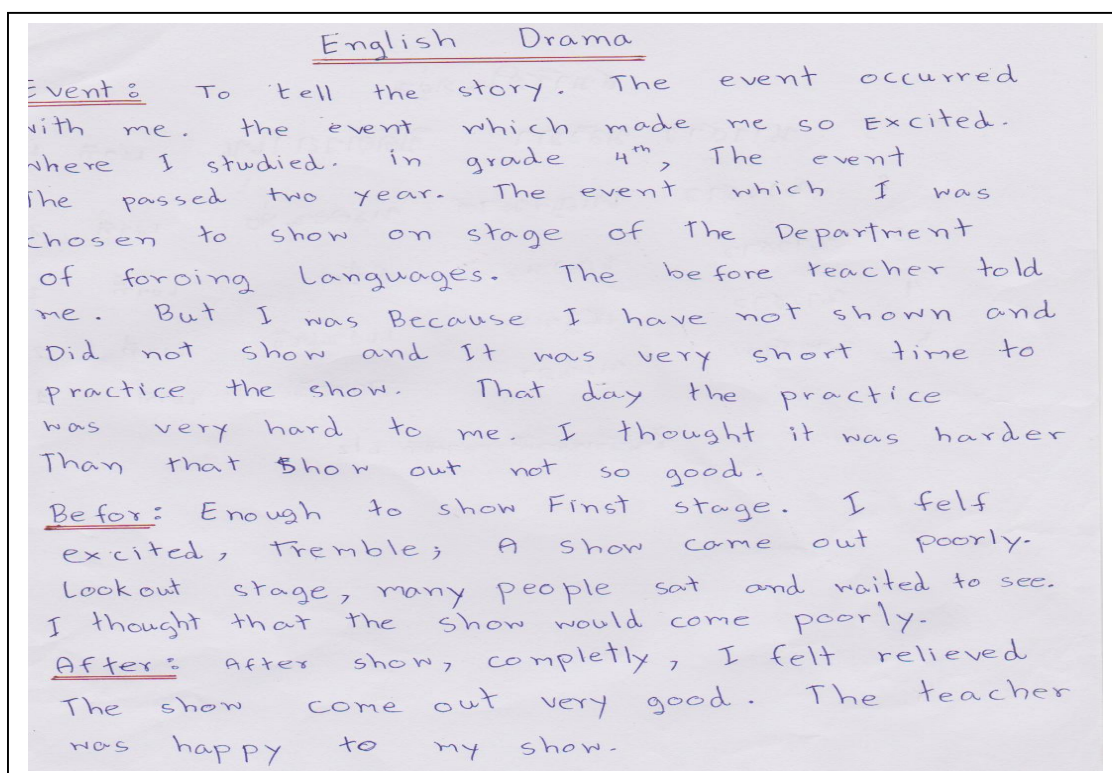 English Drama
Event: To tell the story. The event occurred
with me. the event which made me so Excited.
where I studied. in grade 4th, The event
The passed two year. The event which I was
chosen to show on stage of The Department
of foroing Languages. The before teacher told
me. But I was Because I have not shown and
Did not show and It was very short time to
practice the show. That day the practice
was very hard to me. I thought it was harder
Than that Show out not so good.
Befor: Enough to show First stage. I felf
excited, Tremble; A show came out poorly.
Lookout stage, many people sat and waited to see.
I thought that the show would come poorly.
After: After show, completly, I felt relieved
The show come out very good. The teacher
was happy to my show.